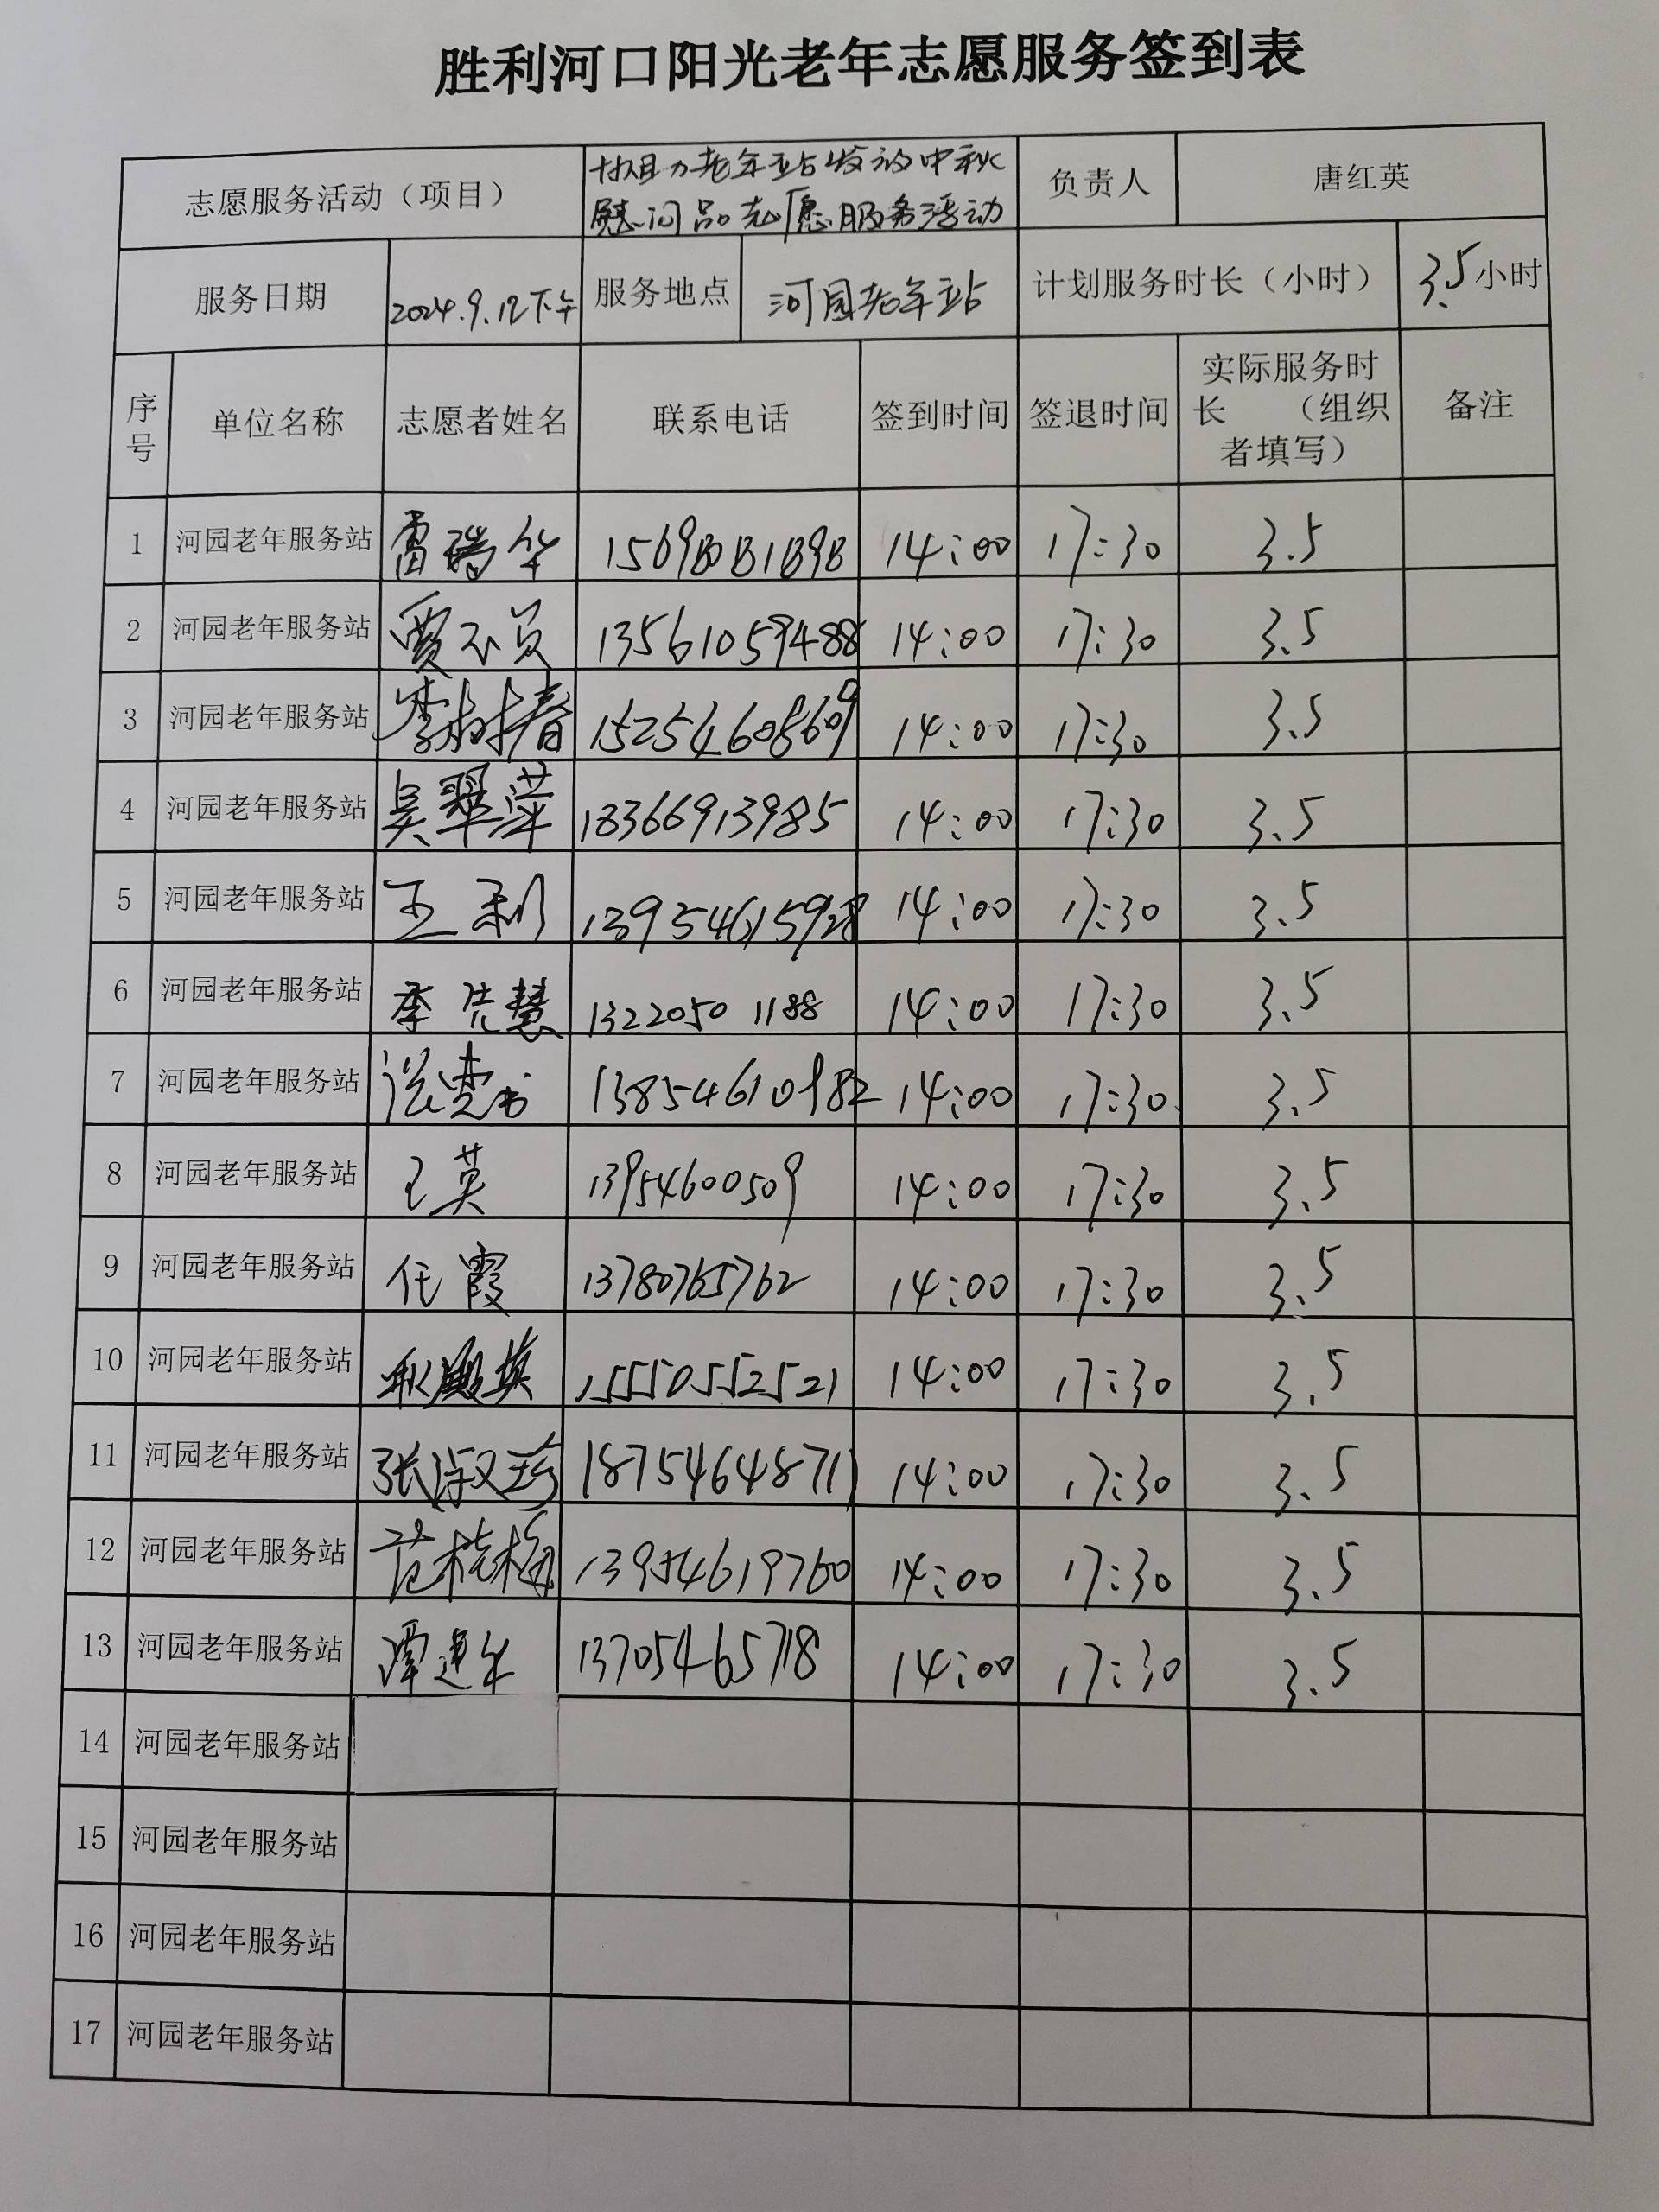 胜利河口阳光老年志愿服务签到表
志愿服务活动（项目） 协助老年站发放中秋 负责人 唐红英
慰问品志愿服务活动
服务日期 2024.9.12下午 服务地点 河园老年站 计划服务时长（小时） 3.5小时
序号 单位名称 志愿者姓名 联系电话 签到时间 签退时间 实际服务时长（组织者填写） 备注
1 河园老年服务站 雷瑞华 14:00 17:30 3.5
2 河园老年服务站 13561059488 14:00 17:30 3.5
3 河园老年服务站 李树春 15254608609 14:00 17:30 3.5
4 河园老年服务站 吴翠萍 18366913985 14:00 17:30 3.5
5 河园老年服务站 王利 13954615928 14:00 17:30 3.5
6 河园老年服务站 李先慧 13220501188 14:00 17:30 3.5
7 河园老年服务站 13854610982 14:00 17:30 3.5
8 河园老年服务站 王英 13954600509 14:00 17:30 3.5
9 河园老年服务站 任霞 13780765762 14:00 17:30 3.5
10 河园老年服务站 15550552521 14:00 17:30 3.5
11 河园老年服务站 张淑珍 18754648711 14:00 17:30 3.5
12 河园老年服务站 范桂梅 13954619760 14:00 17:30 3.5
13 河园老年服务站 谭建华 13705465718 14:00 17:30 3.5
14 河园老年服务站
15 河园老年服务站
16 河园老年服务站
17 河园老年服务站